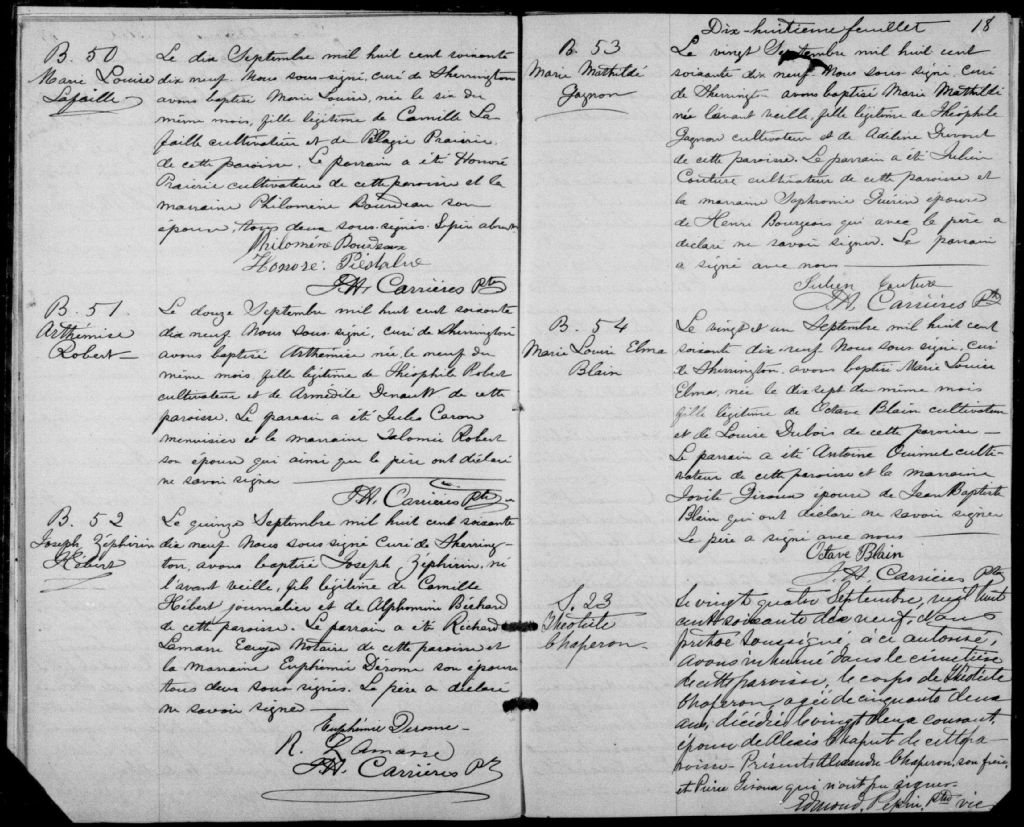 B. 50
Marie Louise
Lafaille
Le dix Septembre mil huit cent soixante
dix neuf. Nous sous-signé, curé de Sherrington
avons baptisé Marie Louise, née le six du
même mois, fille légitime de Camille La
faille cultivateur et de Pélagie Prairie
de cette paroisse. Le parrain a été Honoré
Prairie cultivateurs de cette paroisse et la
marraine Philomène Bourdeau son
épouse, tous deux sous-signés. Le père absent
Philomène Bourdeau
Honoré
J.H. Carrières Ptre
B. 51
Arthémise
Robert
Le douze Septembre mil huit cent soixante
dix neuf. Nous sous-signé, curé de Sherrington
avons baptisé Arthémise née le neuf du
même mois, fille légitime de Théophile Robert
cultivateur et de Armédile Denault de cette
paroisse. Le parrain a été Jules Caron
menuisier et la marraine Salomée Robert
son épouse qui ainsi que le père ont déclaré
ne savoir signer
J.H. Carrières Ptre
B. 52
Joseph, Zéphirin
Hébert
Le quinze Septembre mil huit cent soixante
dix neuf. Nous sous signé Curé de Sherring-
ton, avons baptisé Joseph Zéphirin, né
l'avant veille, fils légitime de Camille
Hébert journalier et de Alphonsine Béchard
de cette paroisse. Le parrain a été Richard
Lamarre Ecuyer Notaire de cette paroisse et
la marraine Euphémie Dérome son épouse
tous deux sous-signés. Le père a déclaré
ne savoir signer
Euphémie Derome
R. Lamarre
J.H. Carrières Ptre
Dix-huitième feuillet 18
B. 53
Marie Mathilde
Gagnon
Le vingt Septembre mil huit cent
soixante dix neuf Nous sous signé, curé
de Sherrington avons baptisé Marie Mathilde
née l'avant veille, fille légitime de Théophile
Gagnon cultivateur et de Adéline
de cette paroisse. Le parrain a été Julien
Couture cultivateur de cette paroisse et
la marraine Sophronie Guérin épouse
de Henri Bourgeois qui avec le père a
déclaré ne savoir signer. Le parrain
a signé avec nous
Julien Couture
J.H. Carrières Ptre
B. 54
Marie Louise Elma
Blain
Le vingt et un Septembre mil huit cent
soixante dix neuf Nous sous signé, curé
de Sherrington, avons baptisé Marie Louise
Elma, née le dix sept du même mois
fille légitime de Octave Blain cultivateur
et de Louise Dubois de cette paroisse
Le parrain a été Antoine Ouimet culti-
vateur de cette paroisse et la marraine
Jovite Giroux épouse de Jean Baptiste
Blain qui ont déclaré ne savoir signer
Le père a signé avec nous
Octave Blain
J.H. Carrières Ptre
S. 23
Théotiste
Chaperon
Le vingt quatre Septembre, mil huit
cent soixante dix neuf, nous
prêtre soussigné, à ce autorisé,
avons inhumé dans le cimetière
de cette paroisse, le corps de Théotiste
Chaperon, agée de cinquante deux
ans, décédée le vingt deux courant,
épouse de Alexis Chaput de cette pa
roisse. Présents Alexandre Chaperon, son frère,
et Pierre Giroux qui n'ont pu signer.
Edmond Pepin, Ptre vic